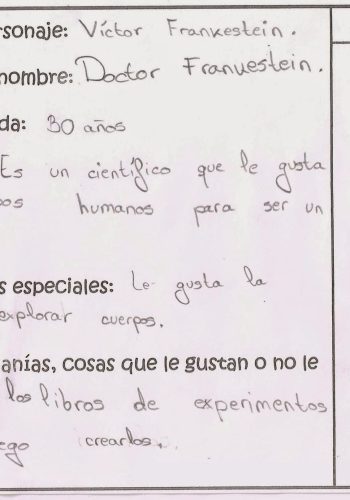 rsonaje: Víctor Frankestein.
nombre: Doctor Frankestein.
da: 30 años
Es un científico que le gusta
os humanos para ser un
s especiales: Le gusta la
explorar cuerpos.
anías, cosas que le gustan o no le
los libros de experimentos
ego crearlos.